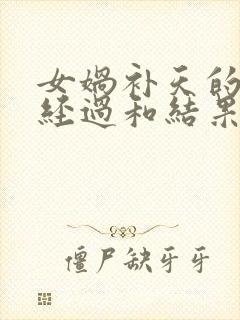 女媧补天的
经過和結果
僵尸缺牙牙